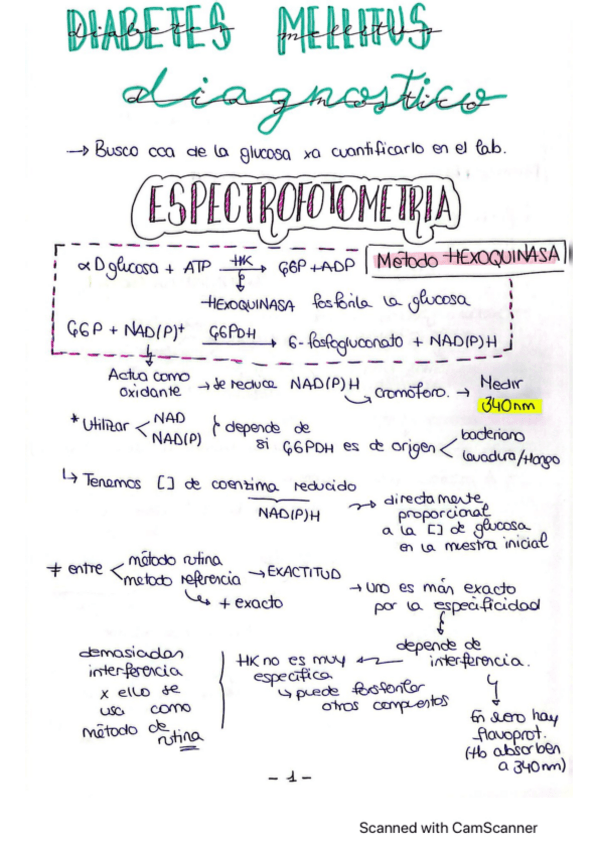 DIABETES MELLITUS
Diabetes mellitus
diagnostico
→ Busco cca de la glucosa xa cuantificarlo en el lab.
ESPECTROFOTOMETRIA
Método HEXOQUINASA
αDglucosa + ATP —HK→ G6P + ADP
HEXOQUINASA fosforila la glucosa
G6P + NAD(P)+ —G6PDH→ 6-fosfogluconato + NAD(P)H
Actua como oxidante → se reduce NAD(P)H → cromóforo. → Medir
340nm
* Utilizar < NAD
NAD(P) } depende de
si G6PDH es de origen < bacteriano
levadura/Hongo
↳ Tenemos [] de coenzima reducido
NAD(P)H
→ directamente
proporcional
a la [] de glucosa
en la muestra inicial
≠ entre < método rutina
metodo referencia → EXACTITUD
↳ + exacto
→ uno es más exacto
por la especificidad
depende de
interferencia.
HK no es muy
especifica
↳ puede fosforilar
otros compuestos
demasiadas
interferencia
x ello se
usa como
método de
rutina
En suero hay
flavoprot.
(Hb absorben
a 340nm)
- 1 -
Scanned with CamScanner